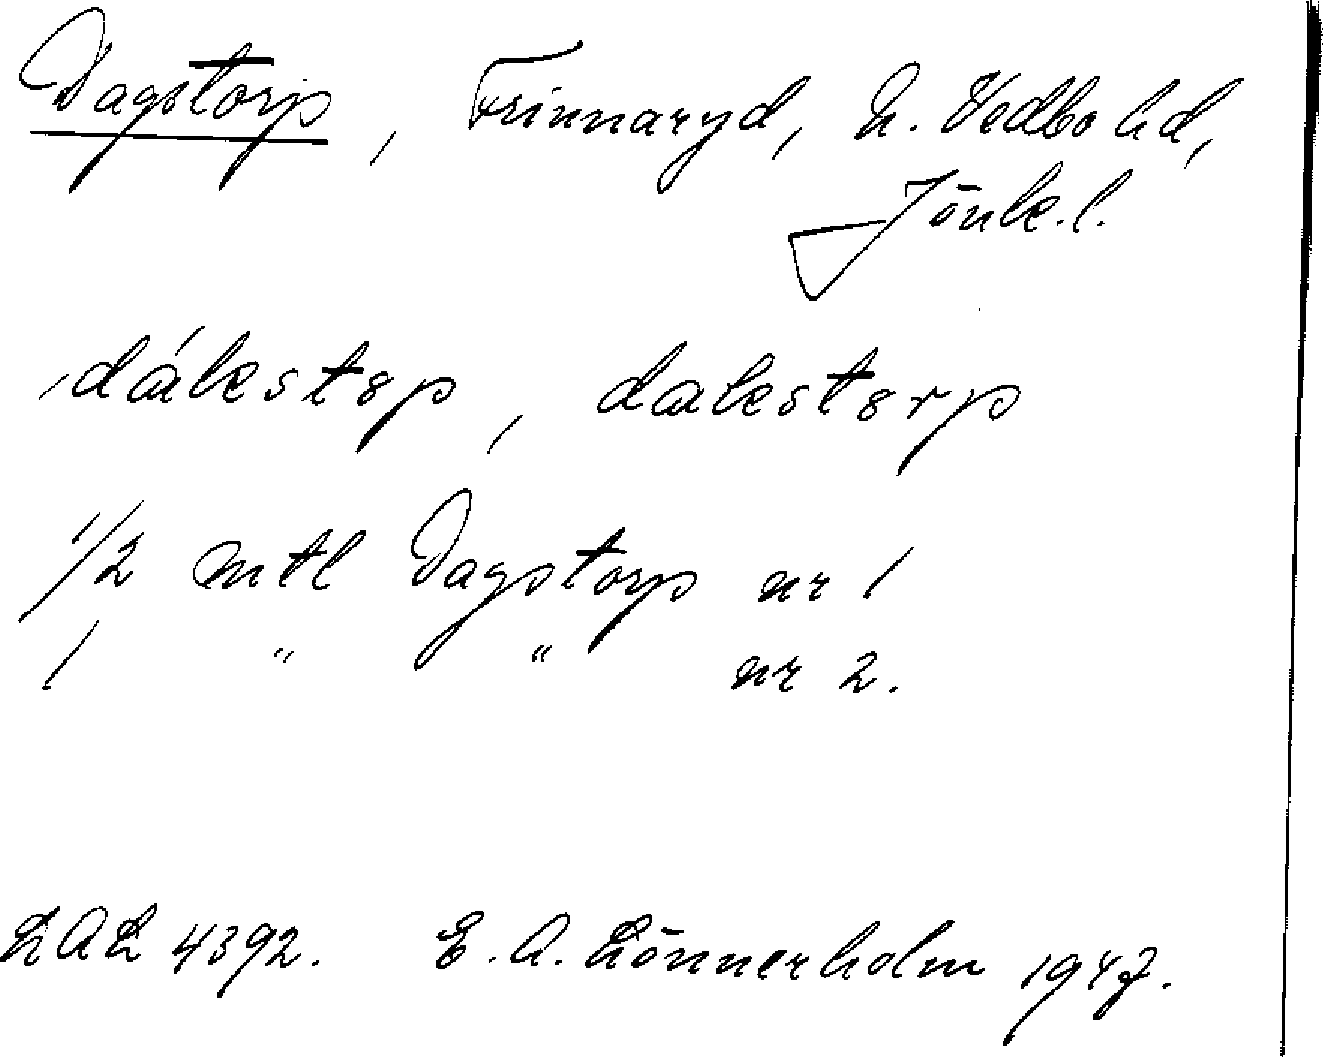 Dagstorp, Frinnaryd, N. Vedbo hd,
Jönk. l.
ˌdákst8p, dakst8rp
1/2 mtl Dagstorp nr 1
1 " " nr 2.
LAL 4392. E. A. Lönnerholm 1947.